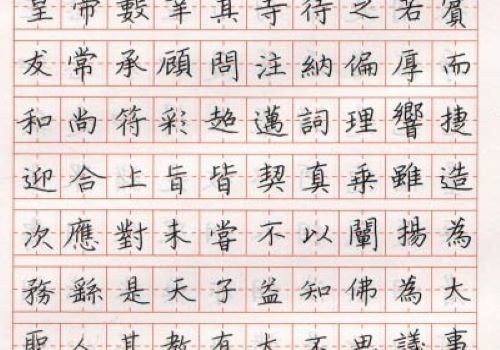 皇帝數幸其寺待之若賓
友常承顧問注納偏厚而
和尚符彩超邁詞理響捷
迎合上旨皆契真乘雖造
次應對未嘗不以闡揚為
務繇是天子益知佛為大
聖人其教有大不思議事